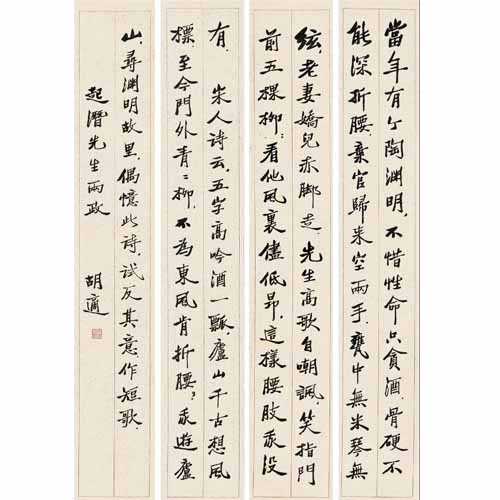 當年有个陶淵明，不惜性命只貪酒，骨硬不
能深折腰，棄官歸来空兩手，甕中無米琴無
絃，老妻嬌兒赤脚走。先生高歌自嘲諷，笑指門
前五棵柳：看他風裏儘低昂，這樣腰肢我没
有。 宋人诗云，五字高吟酒一瓢，廬山千古想風
標，至今門外青〻柳，不為東風肯折腰？我遊廬
山，尋淵明故里，偶憶此诗，試反其意作短歌。
起潛先生兩政 胡適